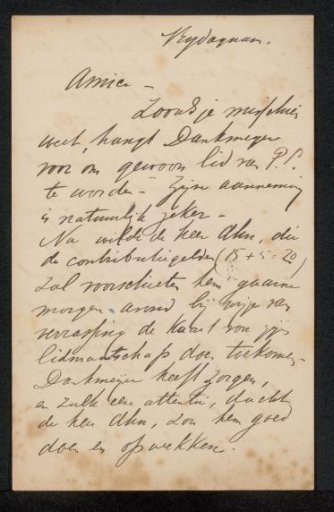 Vrijdagnam.
Amice -
Zooals je misschien
weet, hangt Dankmeyer
voor om gewoon lid van P.P.
te worden - Zijne aanneming
is natuurlijk zeker -
Nu wilde de heer Ahn, die
de contributiegelden (15 + 5 = 20)
zal voorschieten hem gaarne
morgen avond bij wijze van
verrassing de kaart van zijn
lidmaatschap doen toekomen.
Dankmeijer heeft zorgen,
en zulk een attentie, dacht
de heer Ahn, zou hem goed
doen en opwekken.